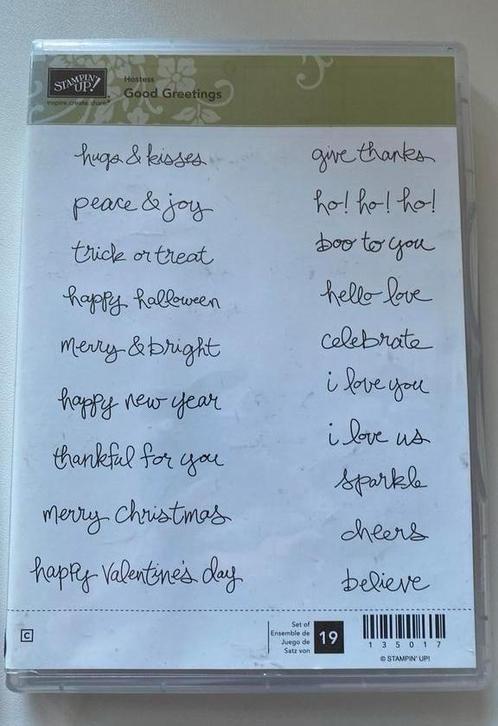 STAMPIN' UP!
inspire.create.share.®
Hostess
Good Greetings
hugs & kisses
peace & joy
trick or treat
happy halloween
merry & bright
happy new year
thankful for you
merry christmas
happy valentine's day
give thanks
ho! ho! ho!
boo to you
hello love
celebrate
i love you
i love us
sparkle
cheers
believe
C
Set of
Ensemble de
Juego de
Satz von
19
135017
© STAMPIN' UP!